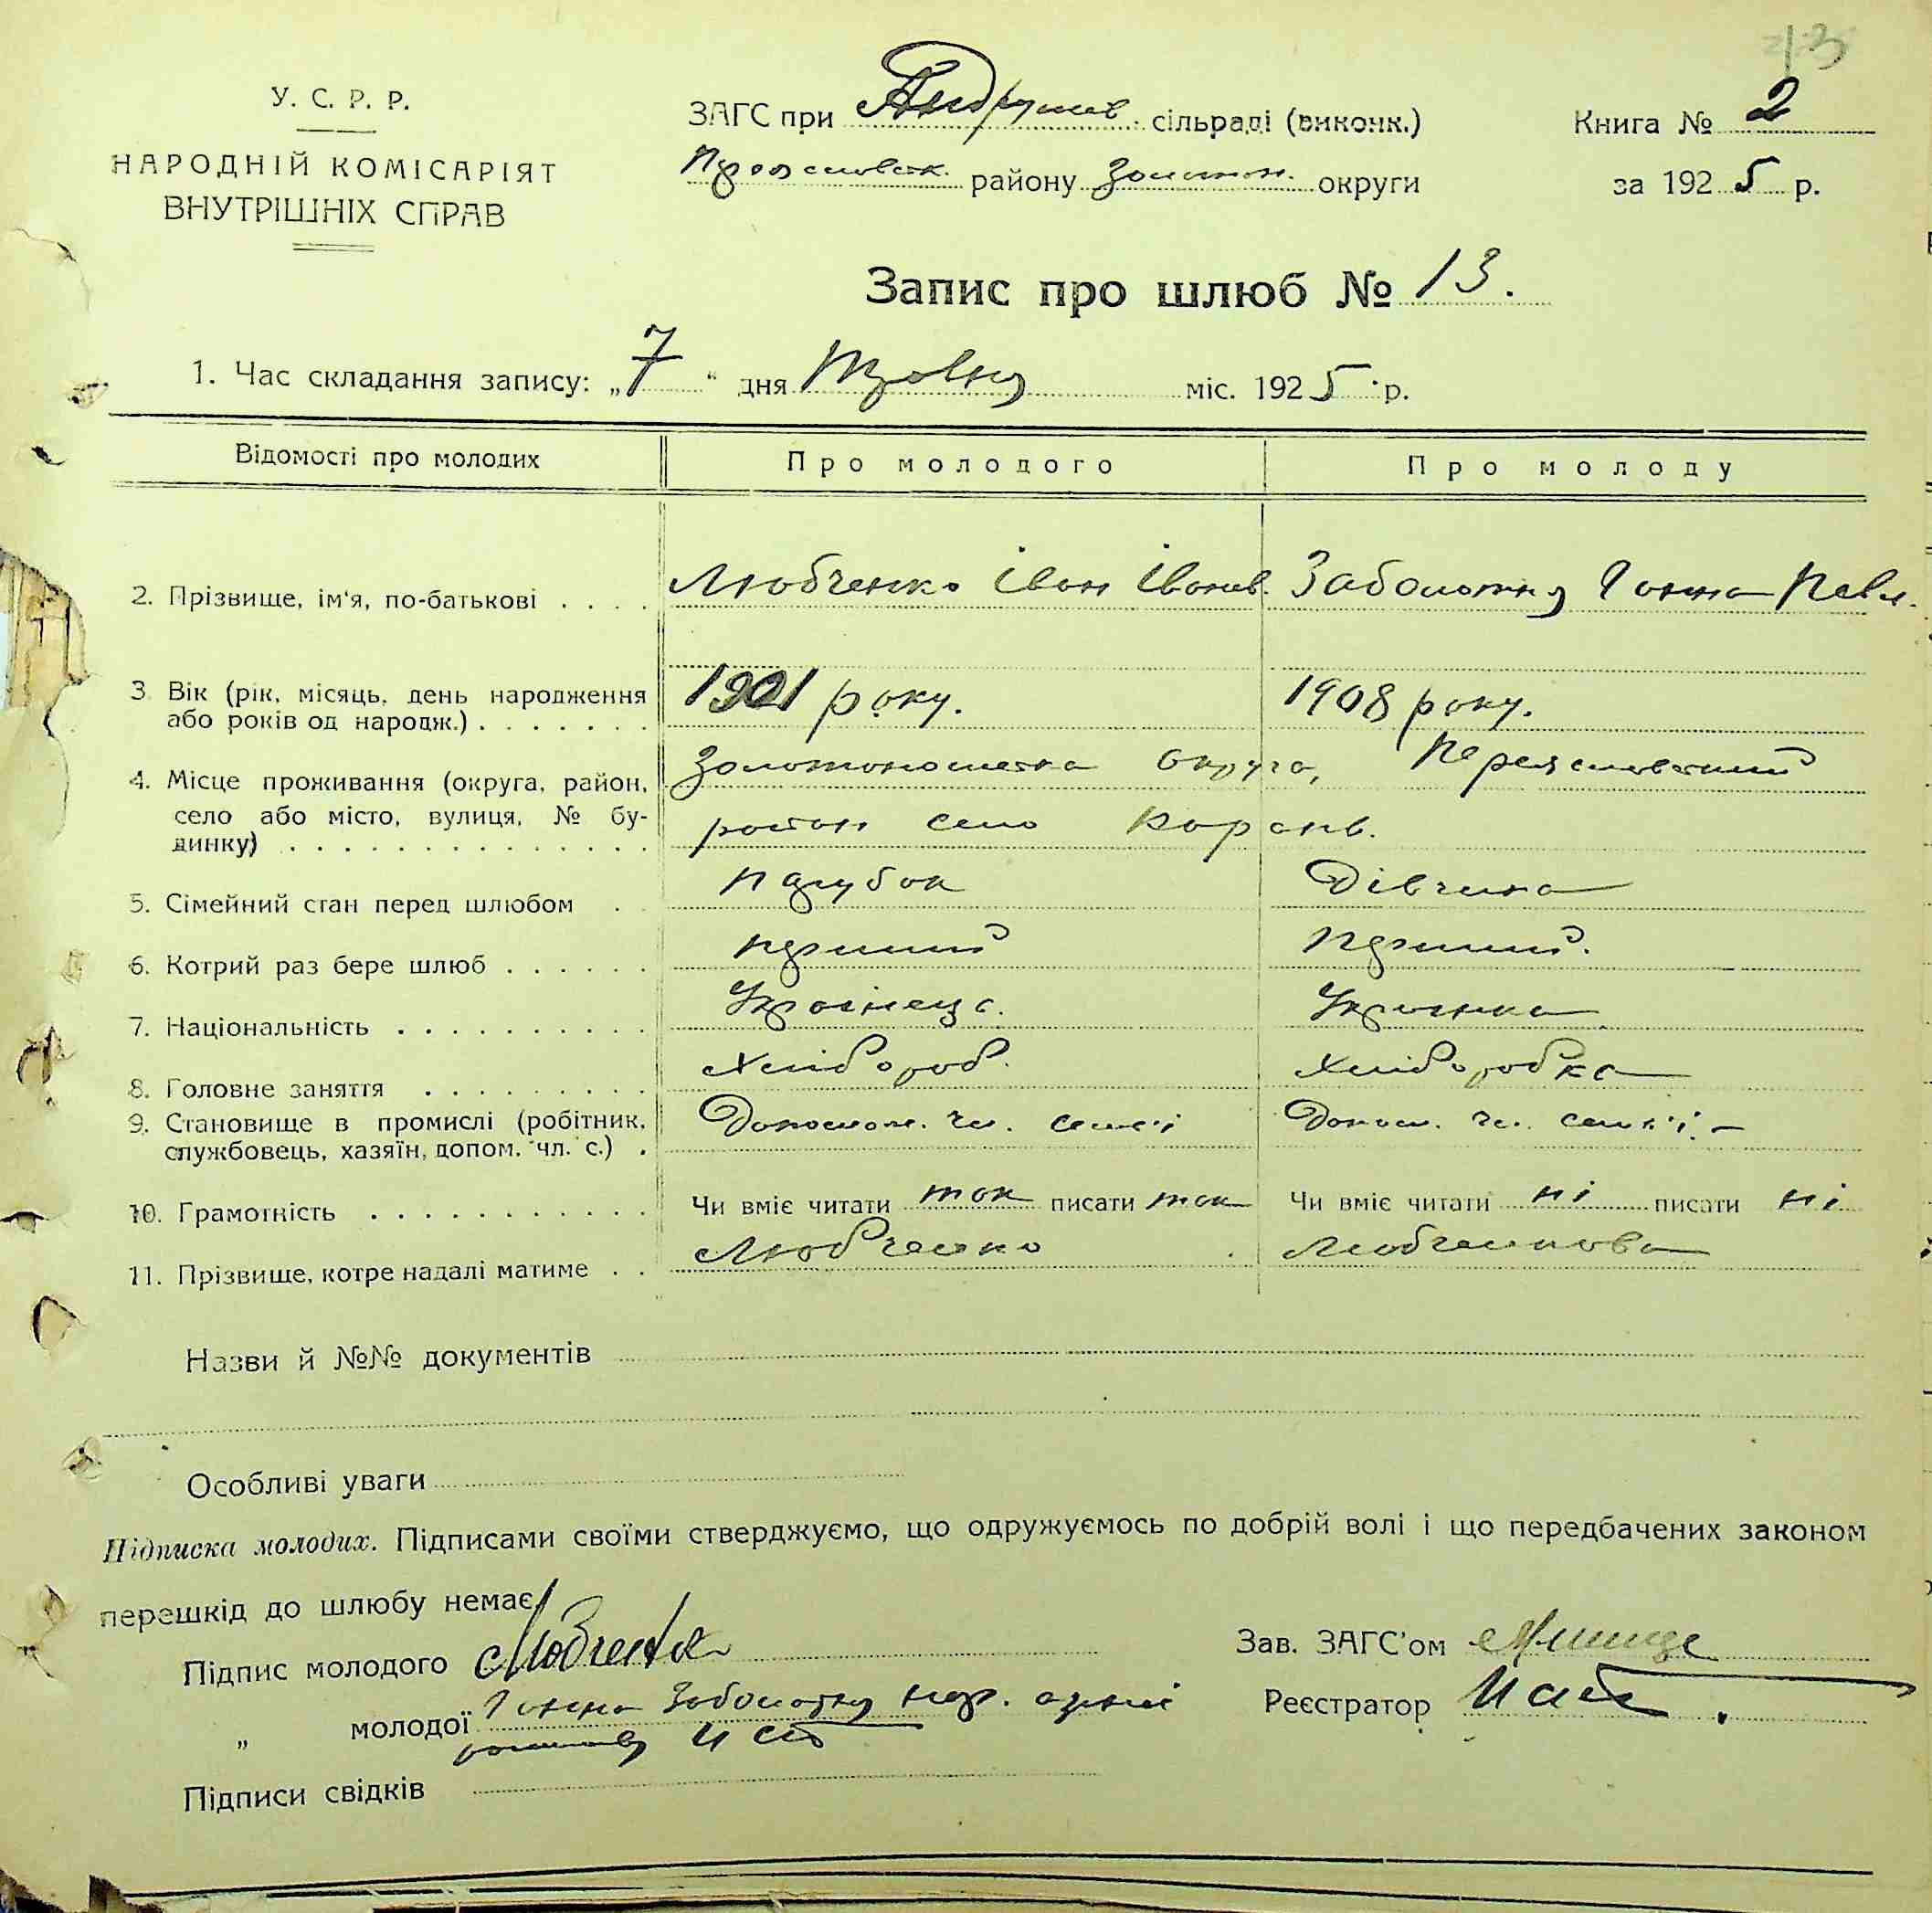 13
У. С. Р. Р.
НАРОДНІЙ КОМІСАРІЯТ
ВНУТРІШНІХ СПРАВ
ЗАГС при Андрушев. сільраді (виконк.)
району Золотон. округи
Книга № 2
за 1925 р.
Запис про шлюб № 13.
1. Час складання запису: „7“ дня Травня міс. 1925 р.
Відомості про молодих Про молодого Про молоду
2. Прізвище, ім'я, по-батькові . . . . Любченко Іван Іванов. Заболотня Ганна Павл.
3. Вік (рік, місяць, день народження
або років од народж.) . . . . . . . 1901 року. 1908 року.
4. Місце проживання (округа, район, Золотоношська округа, Переяславський
село або місто, вулиця, № бу-
динку) . . . . . . . . . . . . . . район село Карань.
5. Сімейний стан перед шлюбом . . парубок Дівчина
6. Котрий раз бере шлюб . . . . . . перший Перший.
7. Національність . . . . . . . . . . Українець. Українка
8. Головне заняття . . . . . . . . . Хлібороб. Хліборобка
9. Становище в промислі (робітник, Допомож. чл. семьі Допом. чл. семьі. –
службовець, хазяїн, допом. чл. с.) .
10. Грамотність . . . . . . . . . . . Чи вміє читати так писати так Чи вміє читати ні писати ні
11. Прізвище, котре надалі матиме . . Любченко Любченкова
Назви й №№ документів
Особливі уваги
Підписка молодих. Підписами своїми стверджуємо, що одружуємось по добрій волі і що передбачених законом
перешкід до шлюбу немає.
Підпис молодого Любченко
Зав. ЗАГС'ом
„ молодої Ганна Заболотня
Реєстратор
Підписи свідків